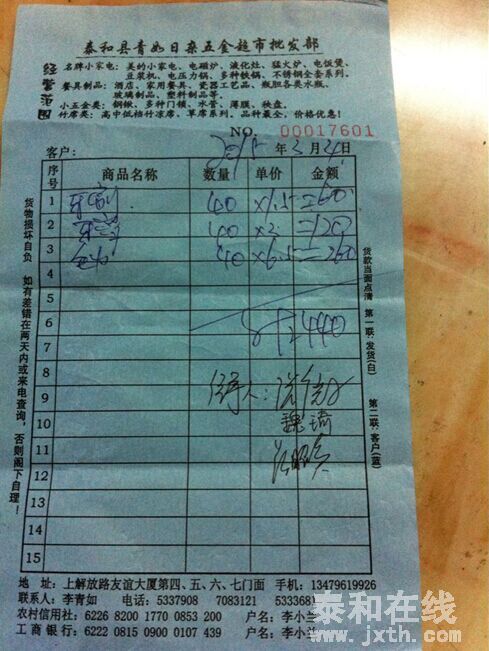 泰和县青如日杂五金超市批发部
经营范围
名牌小家电:美的小家电、电磁炉、液化灶、猛火炉、电饭煲、
豆浆机、电压力锅、多种铁锅、不锈钢全套系列。
餐具制品:酒店、家用餐具、瓷器工艺品、瓶胆各类水瓶、
玻璃制品、塑料制品等。
小五金类:钢锹、多种门锁、水管、薄膜、秧盘。
竹席类:高中低档竹凉席、草席系列。品种最全,价格优惠!
NO. 00017601
客户: 2015年3月24日
序号 商品名称 数量 单价 金额
1 牙刷 40 ×1.5 =60
2 牙膏 40 ×3 =120
3 40 ×6.5 =260
4
5
6 440
7
8
9 经手人:
10 魏琦
11
12
13
14
15
货物损坏自负 如有差错在两天内或来电查询,否则阁下自理!
货款当面点清 第一联:发货(白) 第二联:客户(蓝)
地 址:上解放路友谊大厦第四、五、六、七门面 手机:13479619926
联系人:李青如 电话:5337908 7083121 5333681
农村信用社:6226 8200 1770 0853 200 户名:李小兰
工商银行:6222 0815 0900 0107 439 户名:李小兰
泰和在线
www.jxth.com